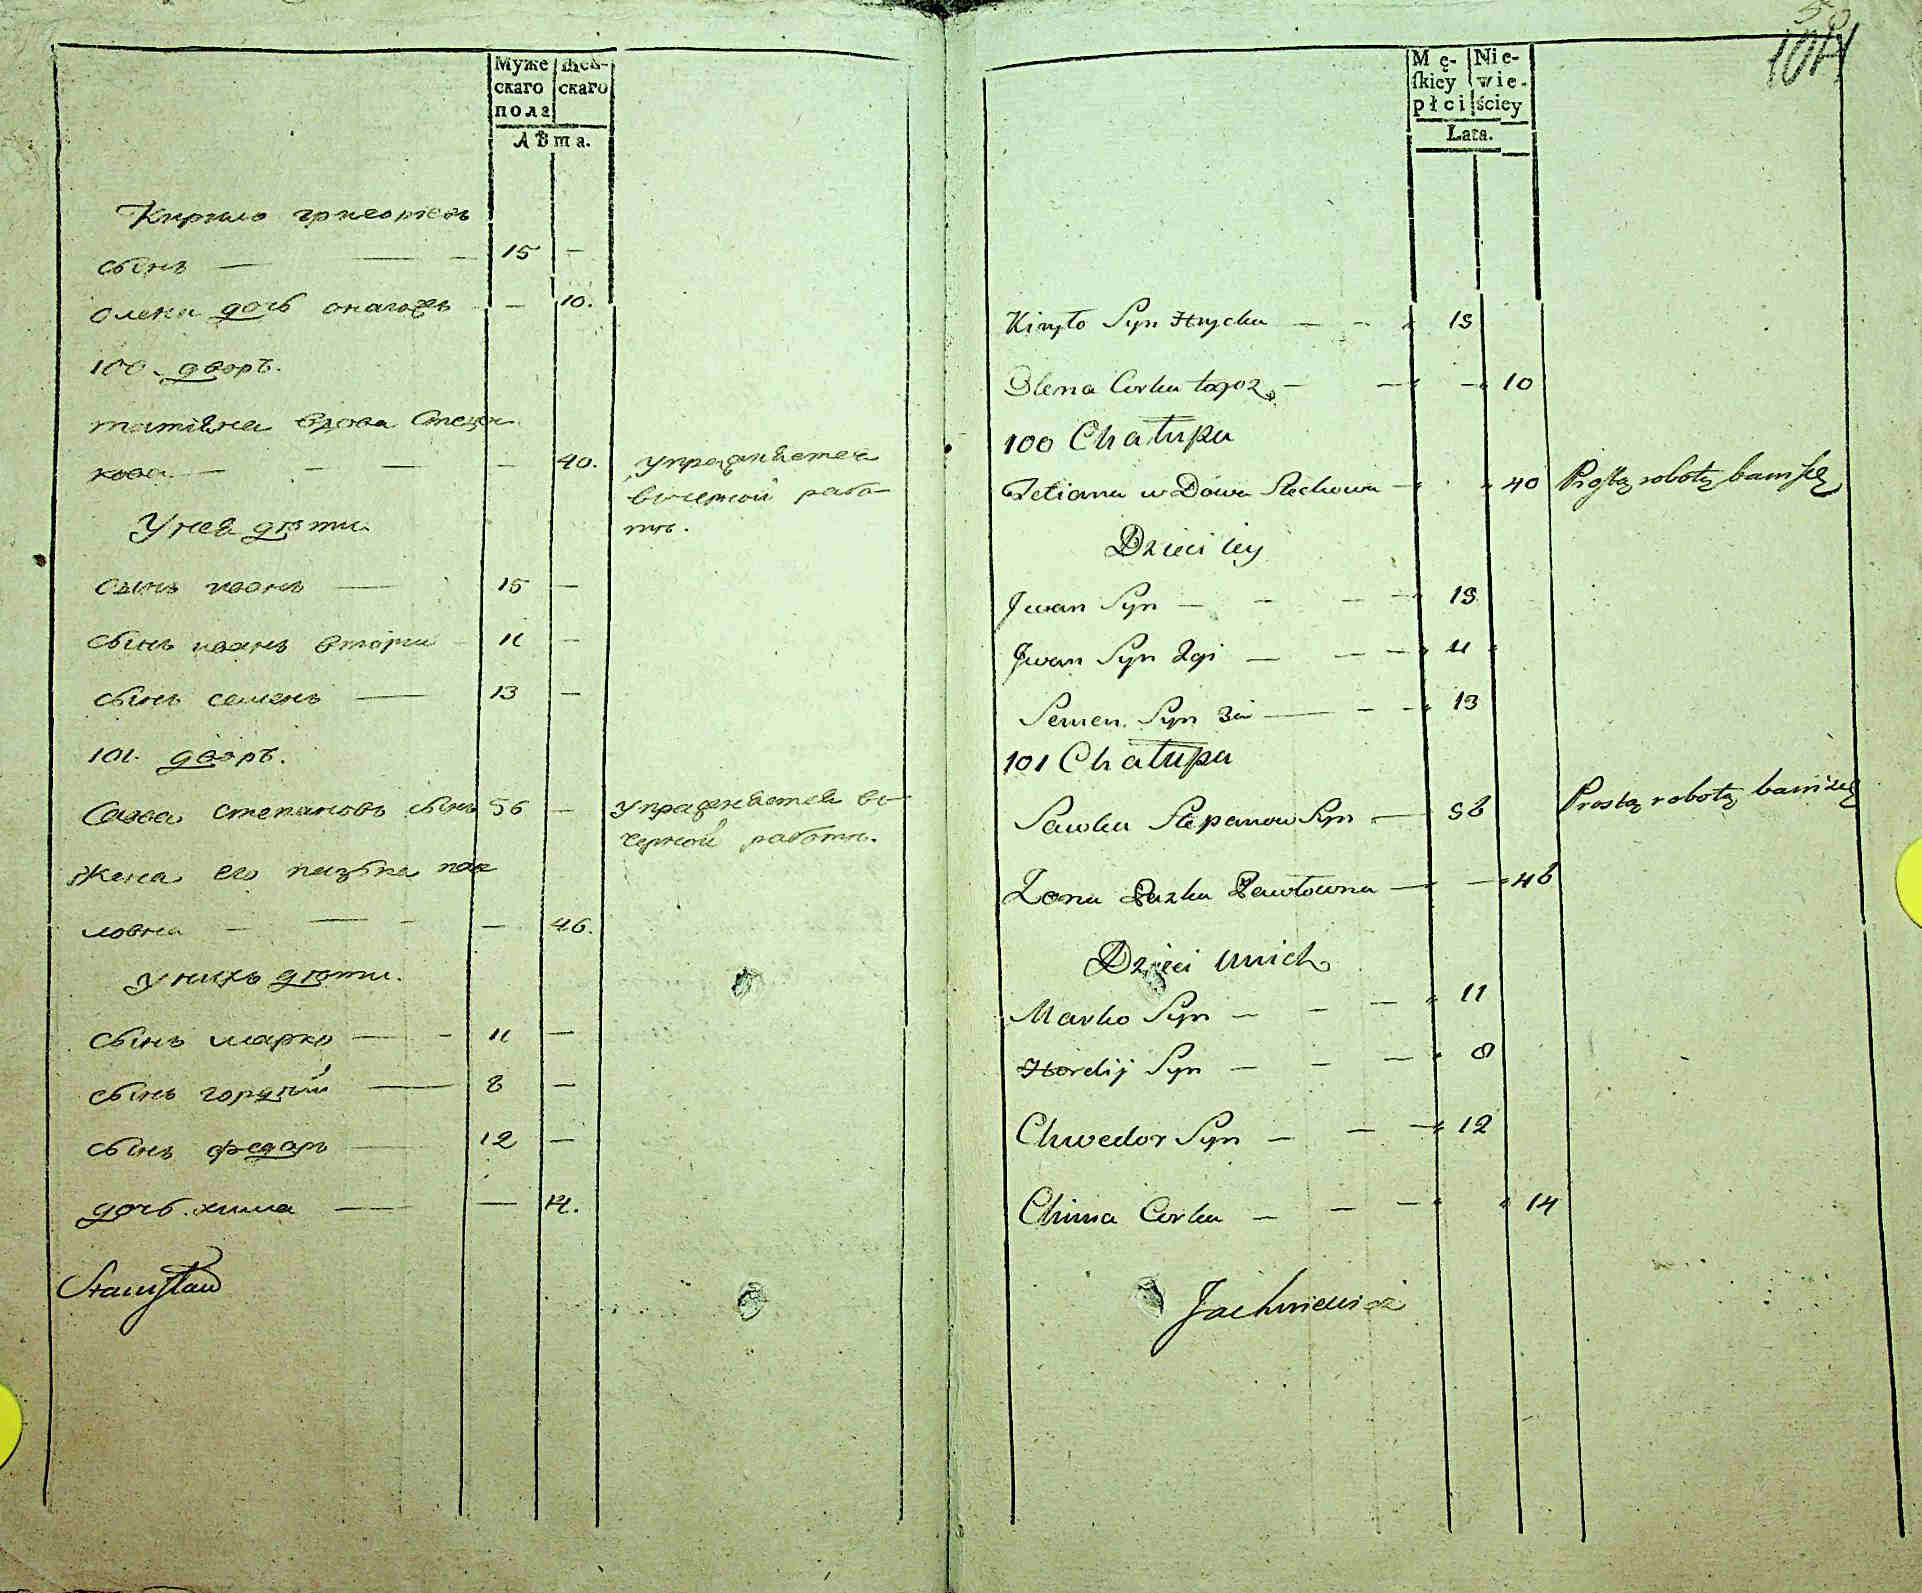 Муже
скаго
пола
Жен-
скаго
Лѣта.
Кирило григориевъ
сынъ — — — 15 —
олена дочь онагожъ — 10.
100. дворъ.
татияна вдова стец
кова — — — — 40. упражняется
вчерной рабо-
тѣ.
У нея дѣти
сынъ иванъ — 15 —
сынъ иванъ втори — 11 —
сынъ семенъ — 13 —
101. дворъ.
Савва степановъ сынъ 56 — упражняется в
черной работы.
Жена его пазька пав
ловна — — — — 46.
У нихъ дѣти.
сынъ марко — — 11 —
сынъ гордѣй — 8 —
сынъ федоръ — 12 —
дочь хима — — 14.
Stanisław
104
Mę-
ſkiey
płci
Nie-
wie-
ściey
Lata.
Kiryło Syn Hrycka — - - 15
Olena Corka tegoż — — - 10
100 Chałupa
Tetiana wDowa Stechowa — 40 Prostą robotą bawi się
Dzieci iey
Jwan Syn — - - - 15
Jwan Syn 2gi — - - 11
Semen Syn 3ci — - - 13
101 Chałupa
Sawka Stepanow Syn — 56 Prostą robotą bawi się
Żona Pazka Pawłowna — — 46
Dzieci unich
Marko Syn — - — 11
Hordij Syn — - — 8
Chwedor Syn — — — 12
Chima Corka — — — 14
Jachniewicz